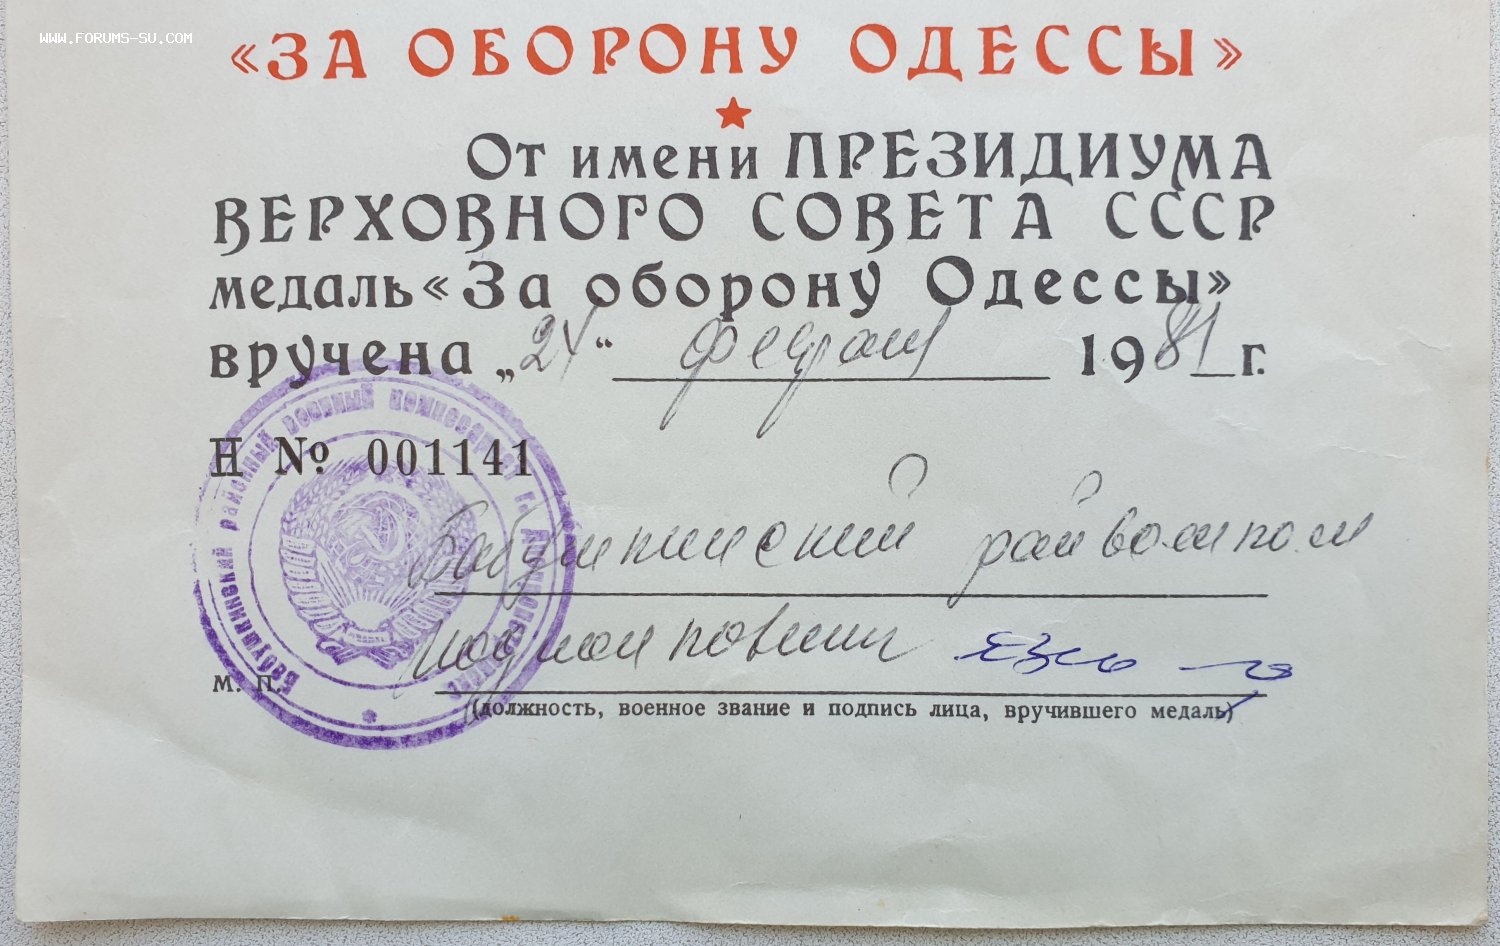 WWW.FORUMS-SU.COM
«ЗА ОБОРОНУ ОДЕССЫ»
От имени ПРЕЗИДИУМА
ВЕРХОВНОГО СОВЕТА СССР
медаль «За оборону Одессы»
вручена „24“ февраля 1981 г.
Н № 001141
Бабушкинский райвоенком
подполковник
м. п.
(должность, военное звание и подпись лица, вручившего медаль)
Бабушкинский районный военный комиссариат г.